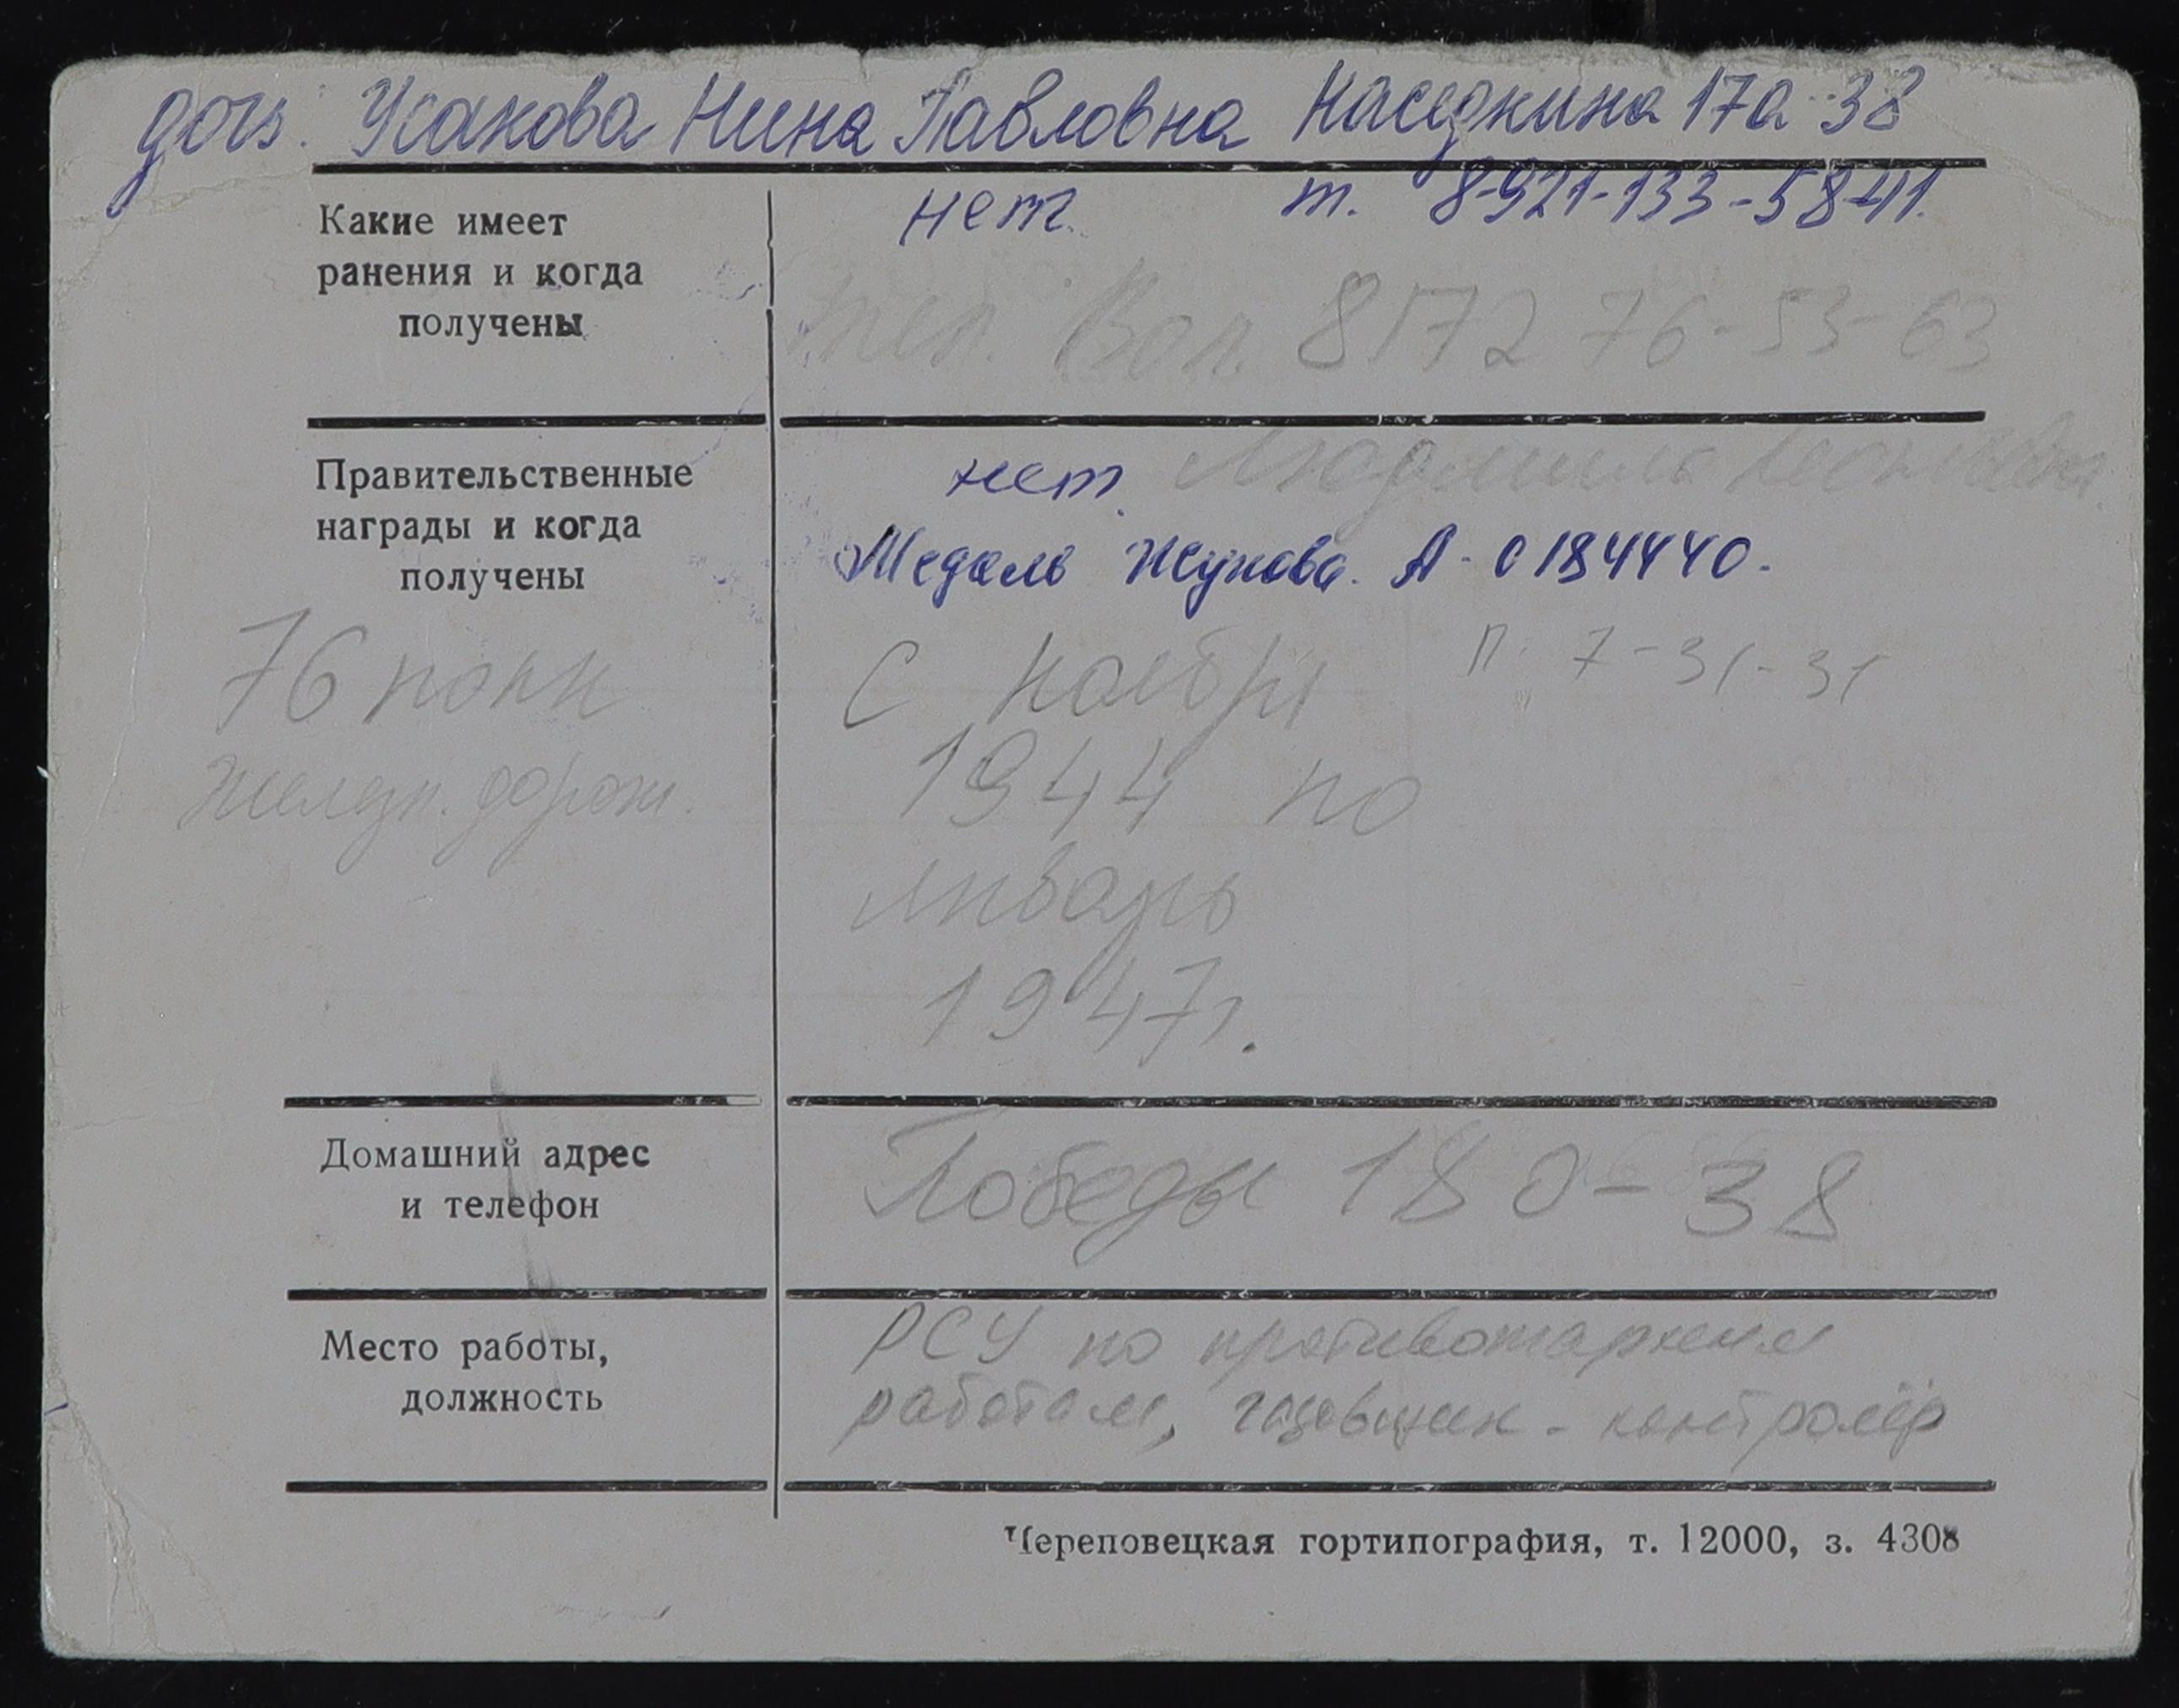 дочь. Усакова Нина Павловна Наседкина 17а-38
т. 8-921-133-58-41.
Какие имеет
ранения и когда
получены
нет.
тел. Вол. 8172 76-53-63
Правительственные
награды и когда
получены
нет. Людмила
Медаль Жукова. А-0184440.
76 полк
железн. дорож.
С ноября
1944 по
январь
1947г.
П. 7-31-31
Домашний адрес
и телефон
Победы 180-38
Место работы,
должность
РСУ по противопожарным
работам, контролёр
Череповецкая гортипография, т. 12000, з. 4308